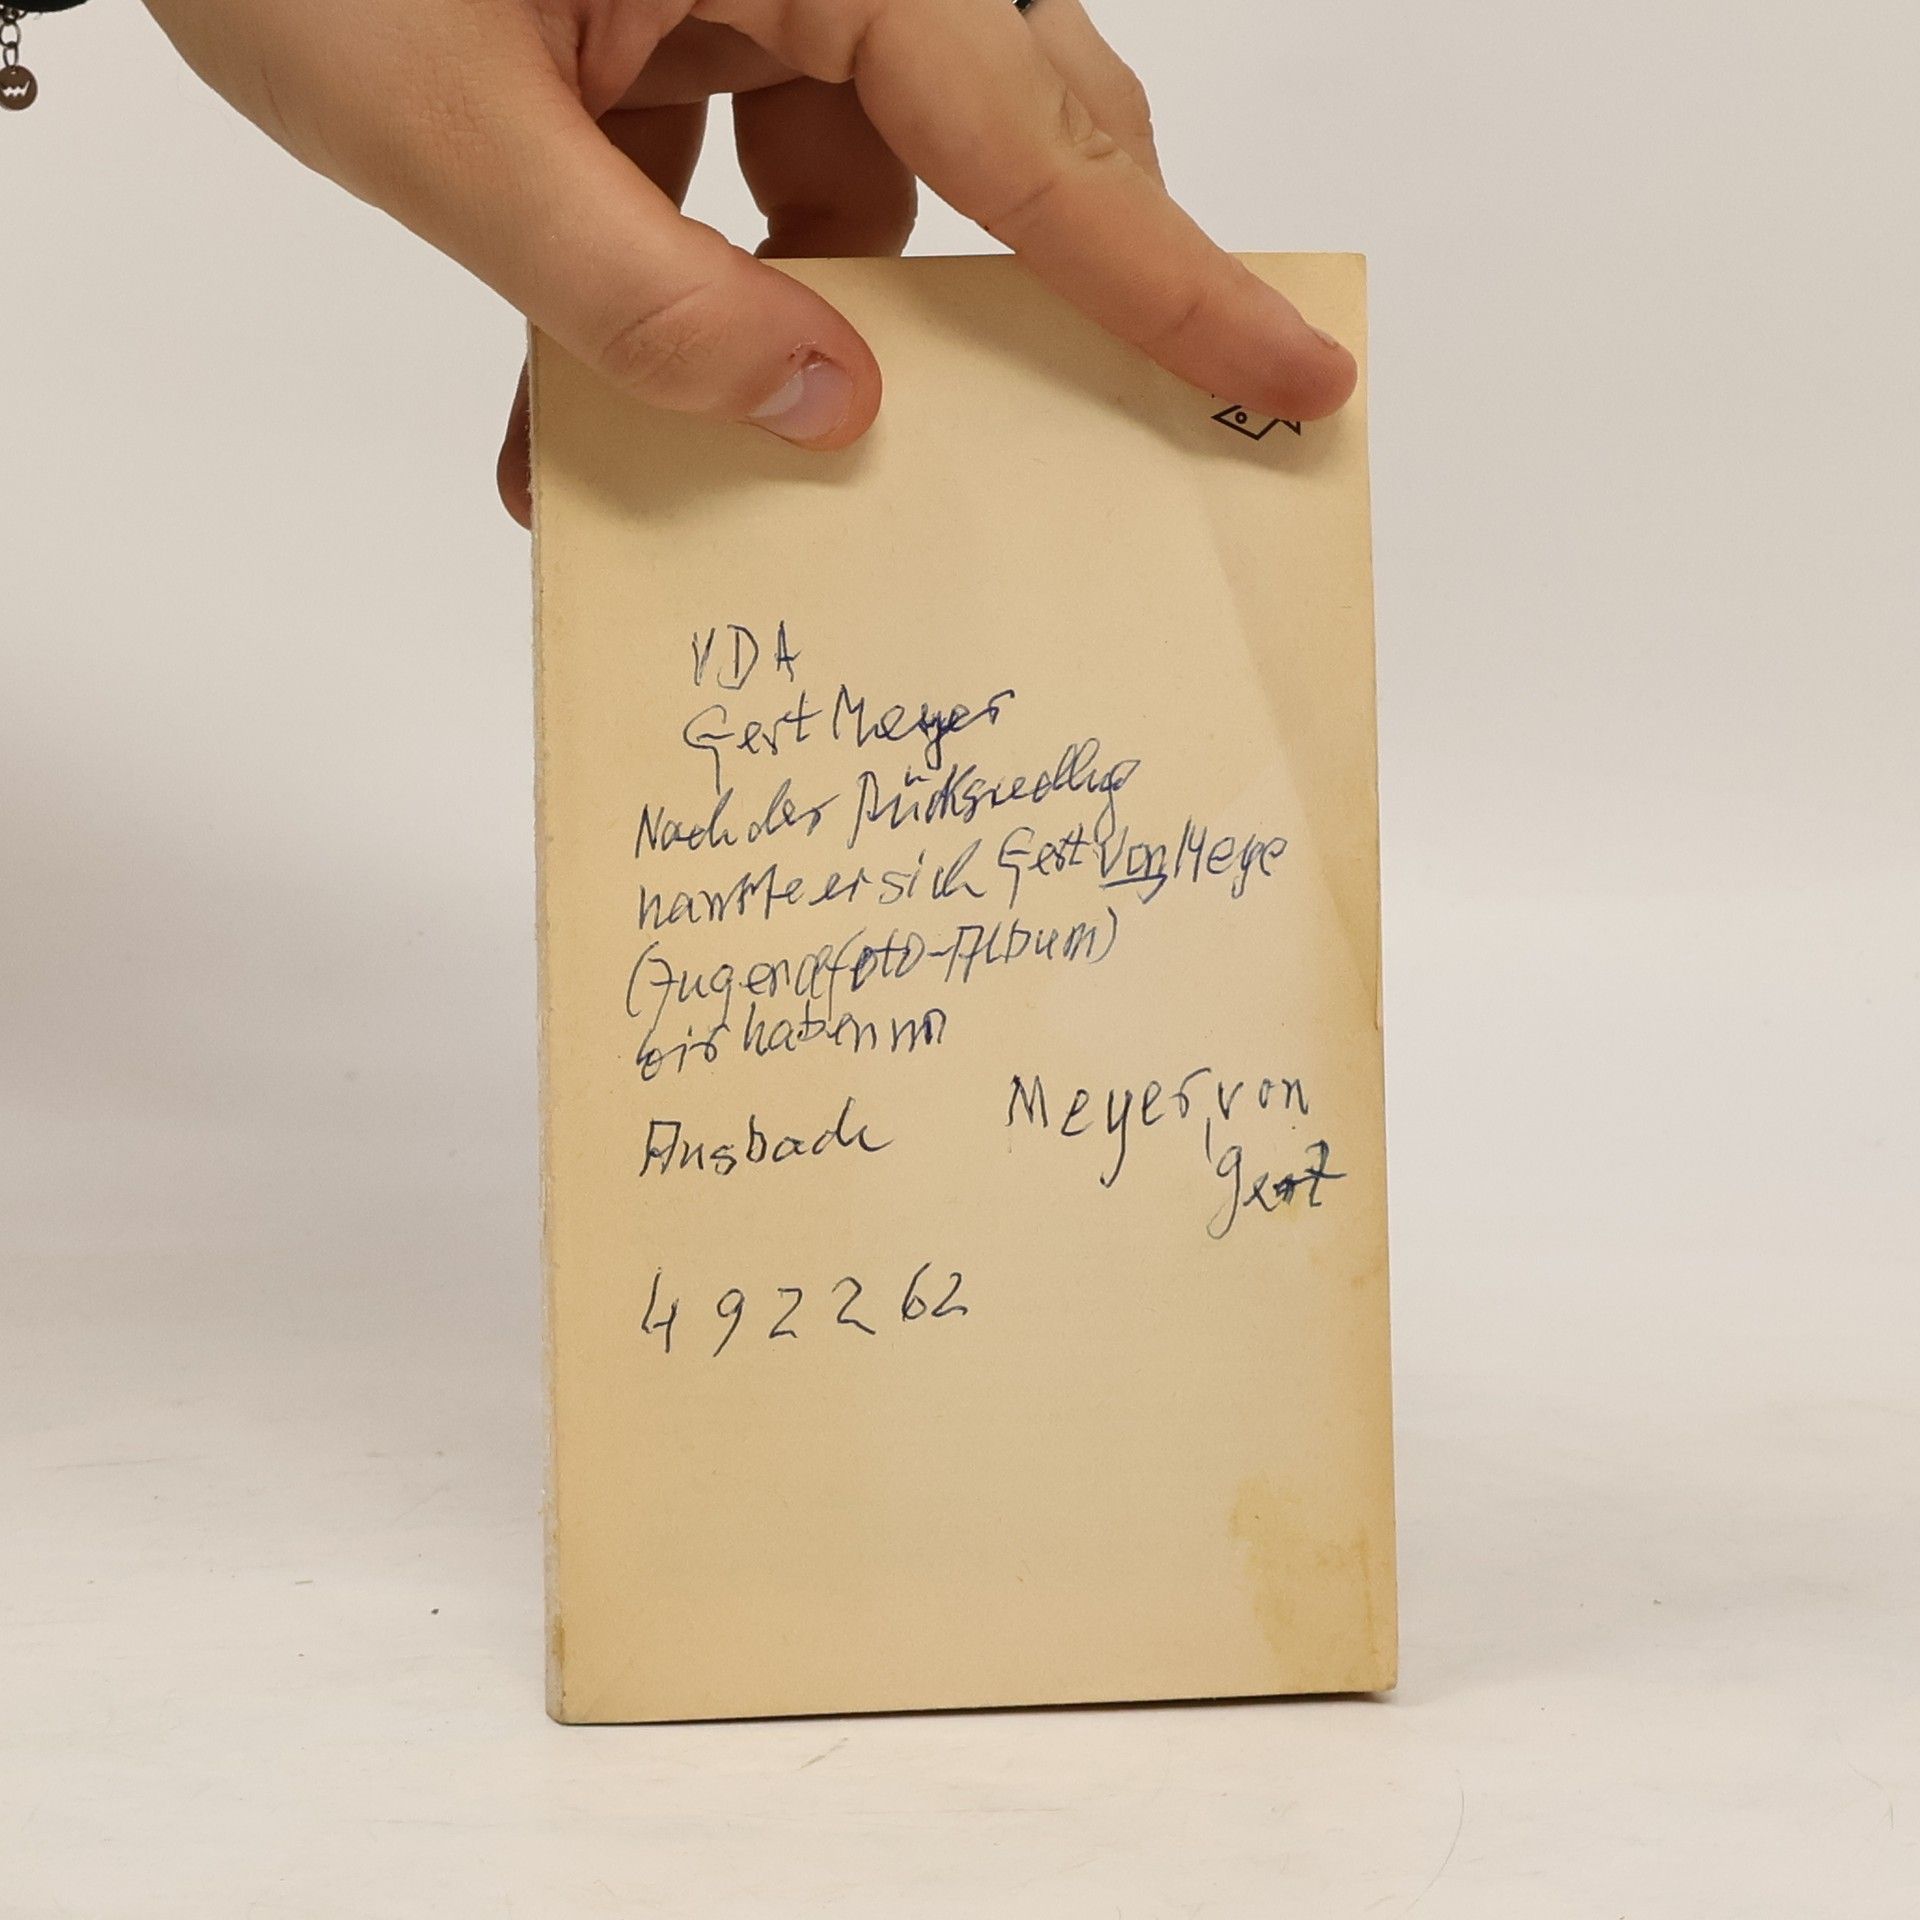 VDA
Gert Meyer
Nach der Rücksiedlg
nannte er sich Gert von Meye
(Jugendfoto-Album)
wir haben ihn
Ansbach
Meyer, von
Gert
4 9 2 2 62